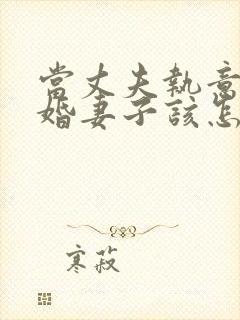 當丈夫執意
婚妻子該怎
寒菽